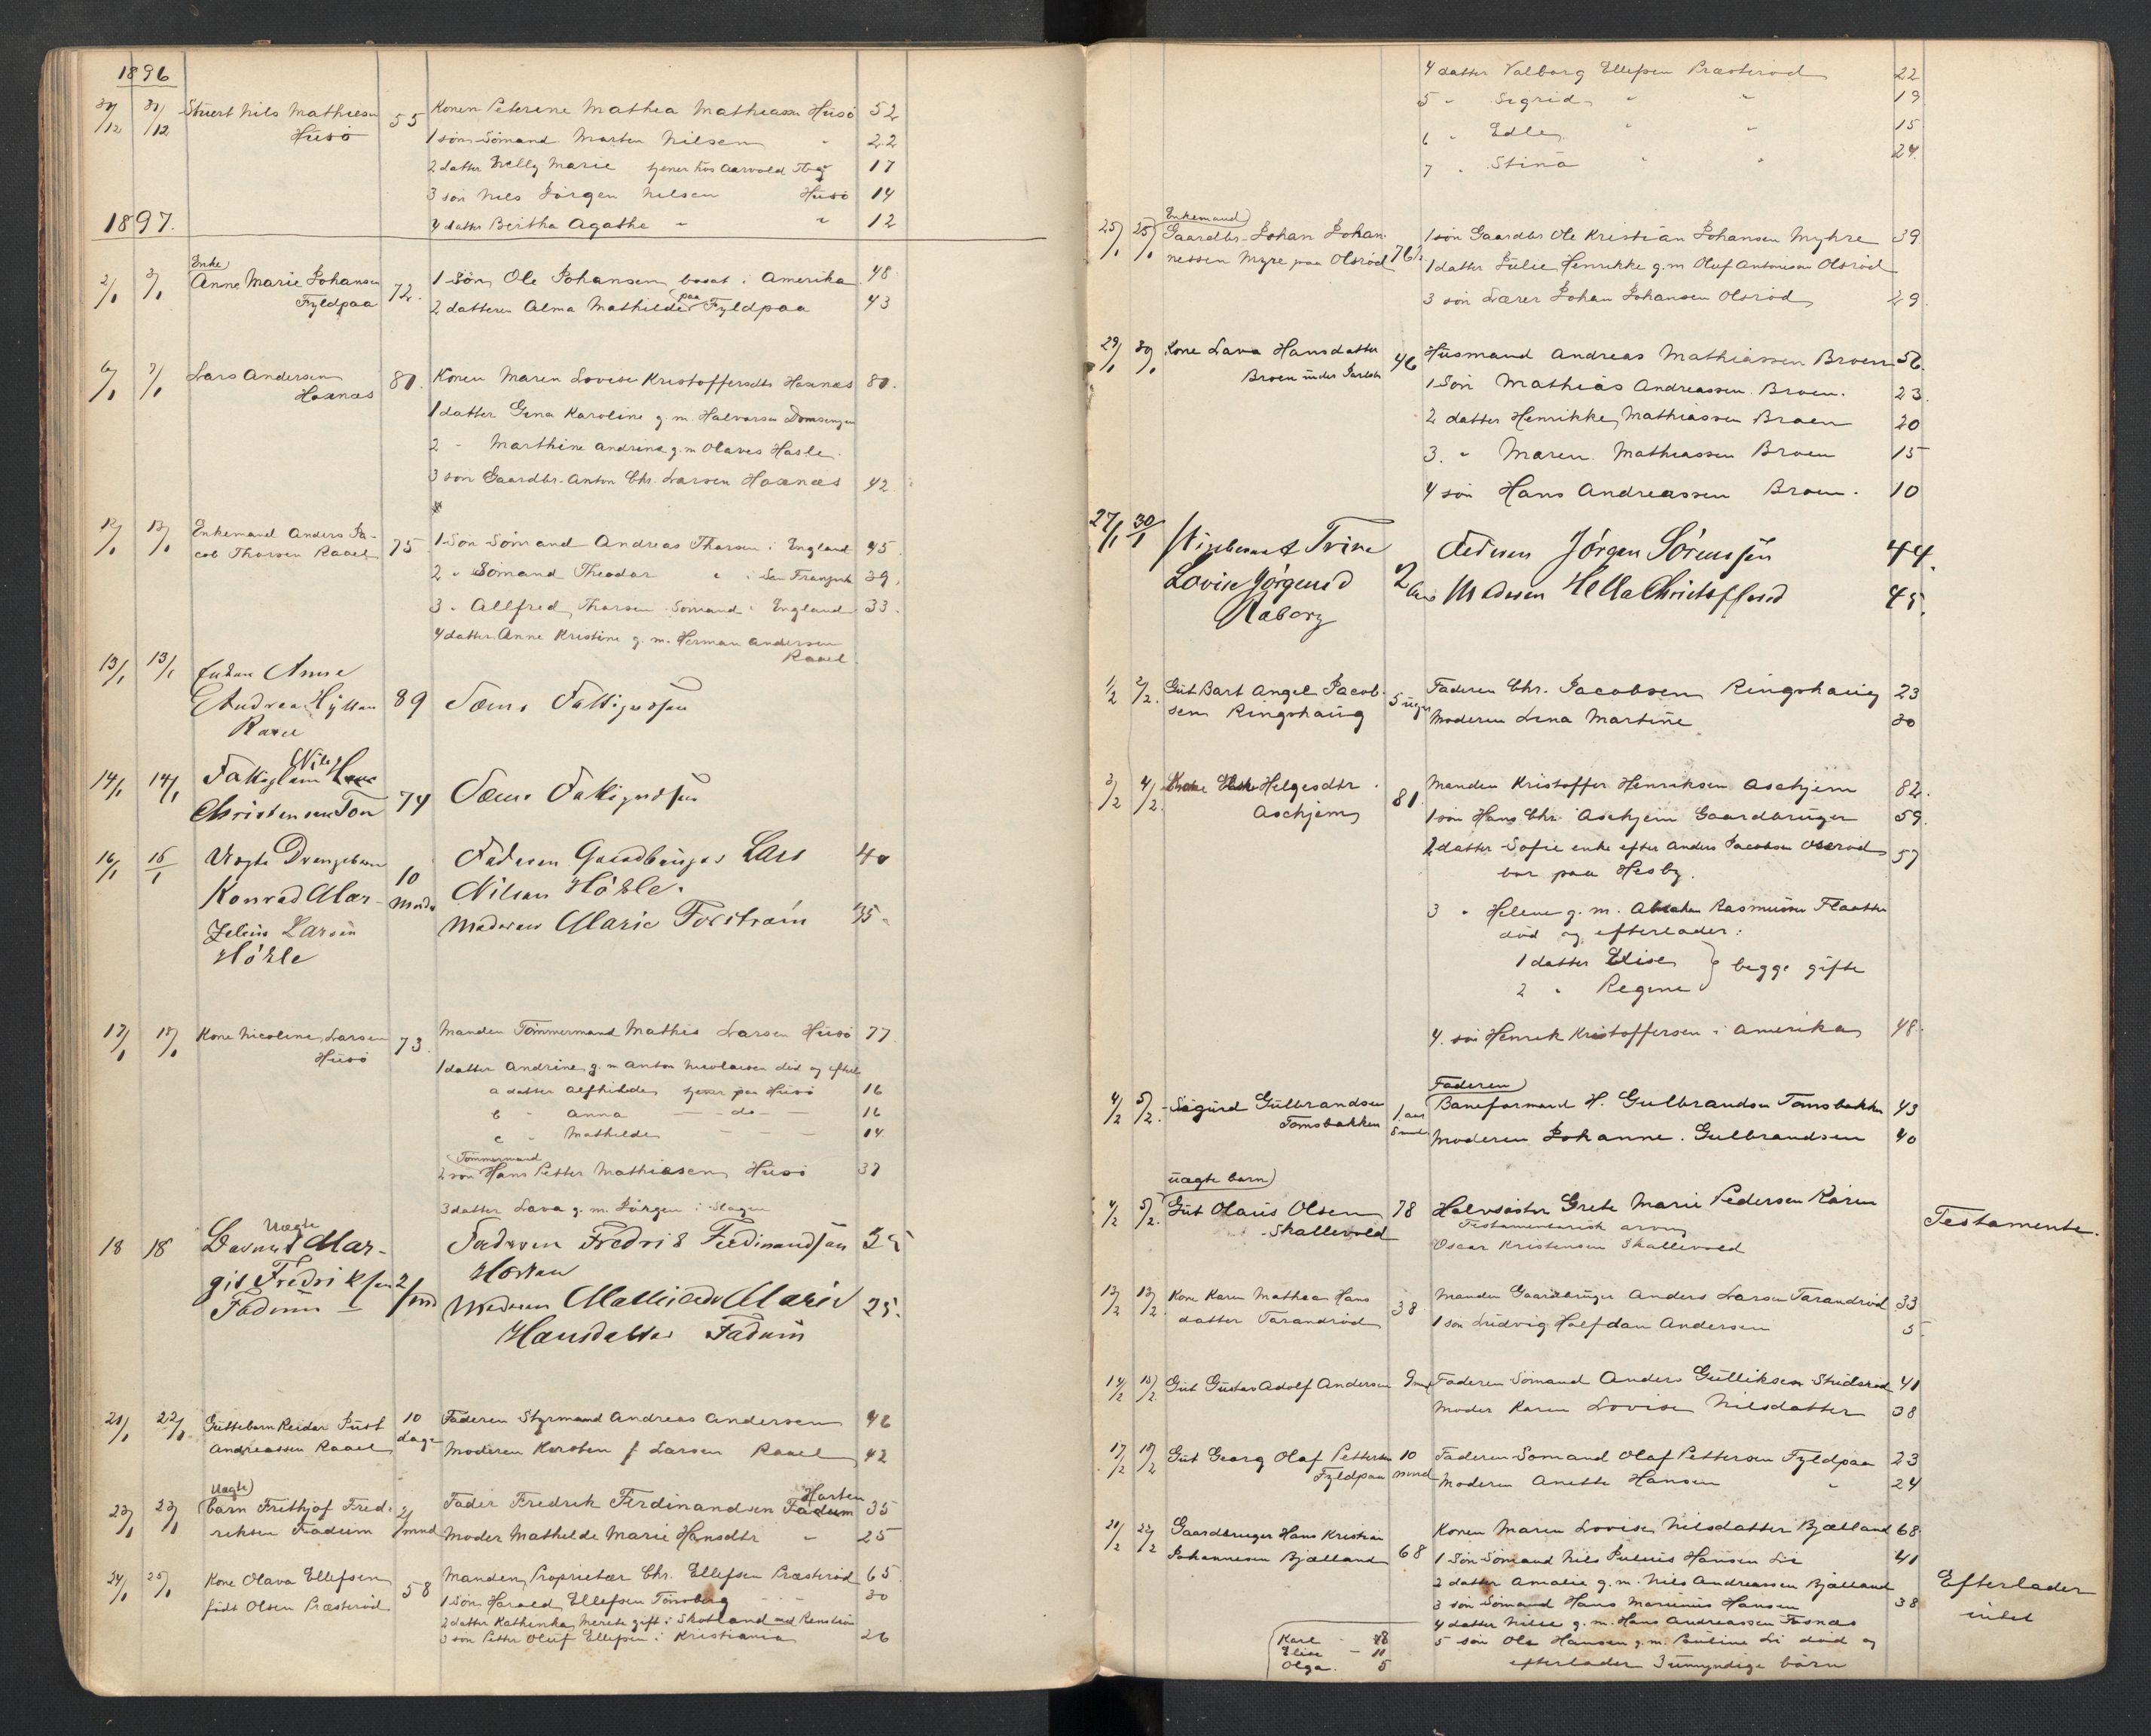 1896
30/12 31/12 Stuert Nils Mathiesen 55 Konen Peterine Mathea Mathiassen Husö 52
Husö 1 søn Sömand Morten Nilsen " 22
2 datter Nelly Marie tjener hos Aarvold Tbg 17
3 søn Nils Jörgen Nilsen Husö 14
4 datter Bertha Agathe " " 12
1897.
Enke
2/1 3/1 Anne Marie Johansen 72. 1 Søn Ole Johansen bosat i Amerika 48
Fyldpaa 2 datteren Alma Mathilde paa Fyldpaa 43
6/1 7/1 Lars Andersen 80. Konen Maren Lovise Kristoffersdtr Hoxnæs 80.
Hoxnæs 1 datter Gina Karoline g. m. Halvorsen
2 - Marthine Andrine g. m Olaves Hasle.
3 søn Gaardbr. Anton Chr. Larsen Hoxnæs 42
12/1 13/1 Enkemand Anders Ja- 75 1 Søn Sömand Andreas Thorsen i England 45
cob Thorsen Raael 2 " Sömand Theodor " i San Fransisk 39.
3 " Allfred Thorsen Sömand i England 33.
4 datter Anne Kristine g. m. Herman Andersen
Raael
13/1 13/1 Enken Anne
Andrea 89
Raael
14/1 14/1 Nils
Christensen 74
16/1 16/1 Uægte Drengebarn 10 Faderen Gaardbruger Lars 40
Konrad Mar- Mndr Nilsen Hökle.
Julius Larsen Moderen Marie 35
Hökle
17/1 18/1 Kone Nicoline Larsen 73. Manden Tömmermand Mathis Larsen Husö 77
Husö 1 datter Andrine g. m Anton Nicolaisen död og efterl
a datter Alfhilde tjener paa Husö 16
b " Anna — do — 16
c " Mathilde — — — 14
Tömmermand
2 søn Hans Petter Mathiasen Husö 37
3 datter Lava g. m. Jörgen i Slagen
Uægte
18 18 Mar- Faderen Fredrik Ferdinandsen 35
git Fredriksen 2/ Horten
Fadum mnd Moderen Mathilde Marie 25.
Hansdatter Fadum
21/1 22/1 Guttebarn Reidar Just 10 Faderen Styrmand Andreas Andersen 46
Andreassen Raael dage Moderen Kirsten f Larsen Raael 42
Uægte
23/1 23/1 barn Frithjof Fred- 2/ Fader Fredrik Ferdinandsen Fadum Horten 35
riksen Fadum mnd Moder Mathilde Marie Hansdtr " 25
24/1 25/1 Kone Olava Ellefsen 58 Manden Proprietær Chr. Ellefsen Præsteröd 65
født Olsen Præsteröd 1 Søn Harald Ellefsen Tönsberg 30
2 datter Kathinka Merete gift i Skotland med
3 søn Petter Oluf Ellefsen i Kristiania 26
4 datter Valborg Ellefsen Præsteröd 22
5 " Sigrid " " 19
6 " Edle " " 15
7 " Stina " " 24
Enkemand
25/1 25/1 Gaardbr. Johan Johan- 76½ 1 søn Gaardbr Ole Kristian Johansen Myhre 39
nessen Myre paa Olsröd 1 datter Julie Henrikke g. m Oluf Antonisen Olsröd
3 søn Lærer Johan Johansen Olsröd 29
29/1 30/1 Kone Lava Hansdatter 46 Husmand Andreas Mathiassen Broen 56.
Broen under Jarlsb 1 Søn Mathias Andreassen Broen. 23.
2 datter Henrikke Mathiassen Broen 20
3. " Maren Mathiassen Broen 15
4 søn Hans Andreassen Broen. 10
27/1 30/1 Pigebarnet Trine Faderen Jörgen Sörenssen 44.
Lovise Jörgensd 2 Aar Moderen Helle Christoffersd 45.
Raaborg
1/2 2/2. Gut Bart Angel Jacob- 5 uger Faderen Chr. Jacobsen Ringshaug 23
sen Ringshaug Moderen Lina Martine 30
3/2 4/2. Kone Helgesdtr. 81. Manden Kristoffer Henriksen Aschjem 82.
Aschjem 1 søn Hans Chr. Aschjem Gaardbruger 59.
2 datter Sofie enke efter Anders Jacobsen Oseröd 57
bor paa Hesby.
3 " Helene g. m. Abraham Rasmussen
død og efterlader:
1 datter Elise } begge gifte
2 " Regine
4. søn Henrik Kristoffersen i Amerika 48.
Faderen
4/2 5/2. Sigurd Gulbrandsen 1 aar Baneformand H. Gulbrandsen Tomsbakken 43
Tomsbakken 5 mndr Moderen Johanne. Gulbrandsen 40
uægte barn
4/2 5/2. Gut Olaus Olsen 78 Halvsöster Grete Marie Pedersen Råren
Skallevold Testamentarisk arving Testamente.
Oscar Kristensen Skallevold
12/2 13/2. Kone Karen Mathea Hans 38 Manden Gaardbruger Anders Larsen Tarandröd 33
datter Tarandröd 1 søn Ludvig Halfdan Andersen 5
14/2 15/2. Gut Gustav Adolf Andersen 9 mnd Faderen Sömand Anders Gulliksen 41
Moder Karen Lovise Nilsdatter 38
17/2 18/2 Gut Georg Olaf Pettersen 10 Faderen Sömand Olaf Pettersen Fyldpaa 23
Fyldpaa mnd Moderen Anette Hansen " 24
21/2 22/2 Gaardbruger Hans Kristian Konen Maren Lovise Nilsdatter Bjælland 68
Johannesen Bjælland 68 1 Søn Sömand Nils Julius Hansen Li 41
2 datter Amalie g. m. Nils Andreassen Bjælland Efterlader
3 søn Sömand Hans Marinius Hansen 38 intet
4 datter Nille g. m. Hans Andreassen
5 søn Ole Hansen g. m. Pauline Li død og
efterlader 3 umyndige børn
Karl - 18
Elise - 11
Olga. 5